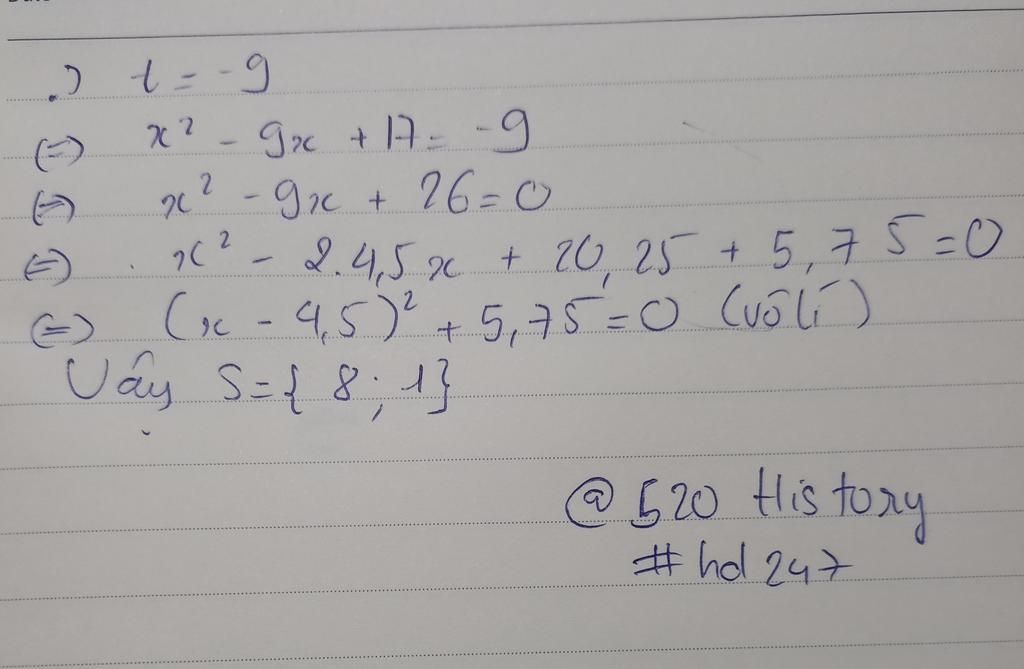 .) t = -9
(=) x² - 9x + 17 = -9
(=) x² - 9x + 26 = 0
(=) x² - 2.4,5x + 20,25 + 5,75 = 0
(=) (x - 4,5)² + 5,75 = 0 (vô lí)
Vậy S = { 8 ; 1 }
@ 520 History
# hd 247